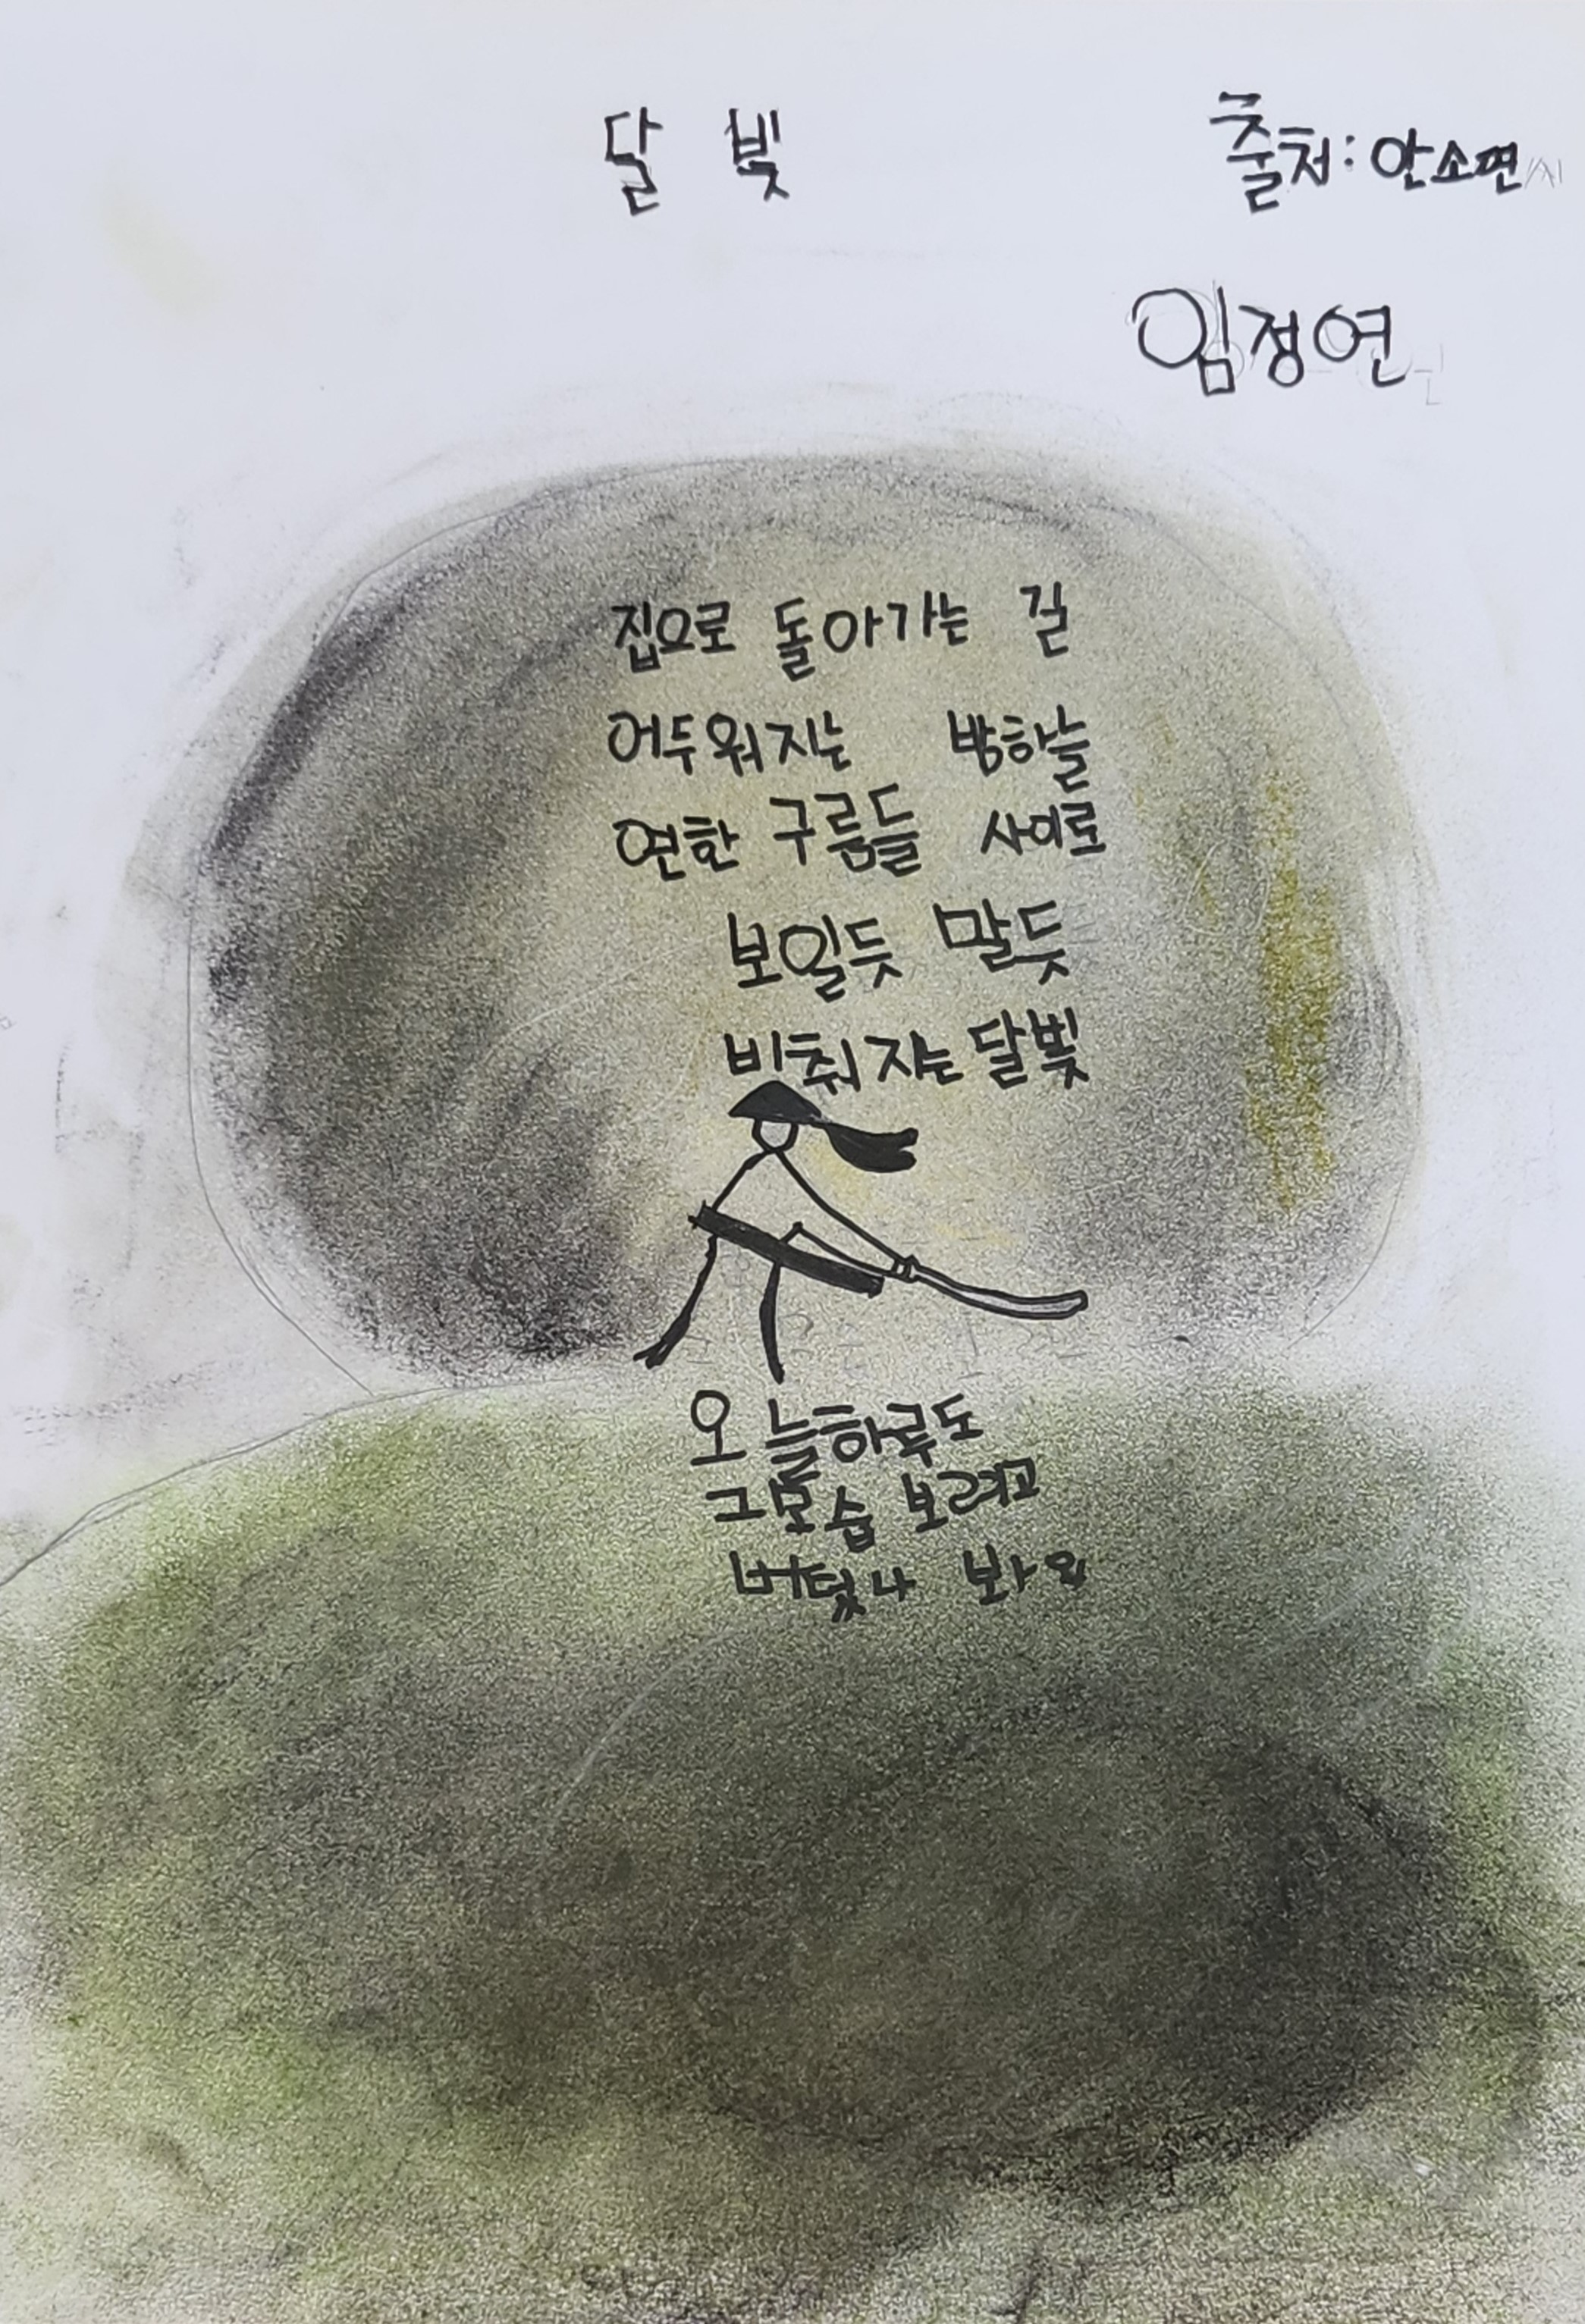 달 빛
출처: 안소연
임정연
집으로 돌아가는 길
어두워지는 밤하늘
연한 구름들 사이로
보일듯 말듯
비춰지는 달빛
오늘하루도
그모습 보려고
버텼나 봐요